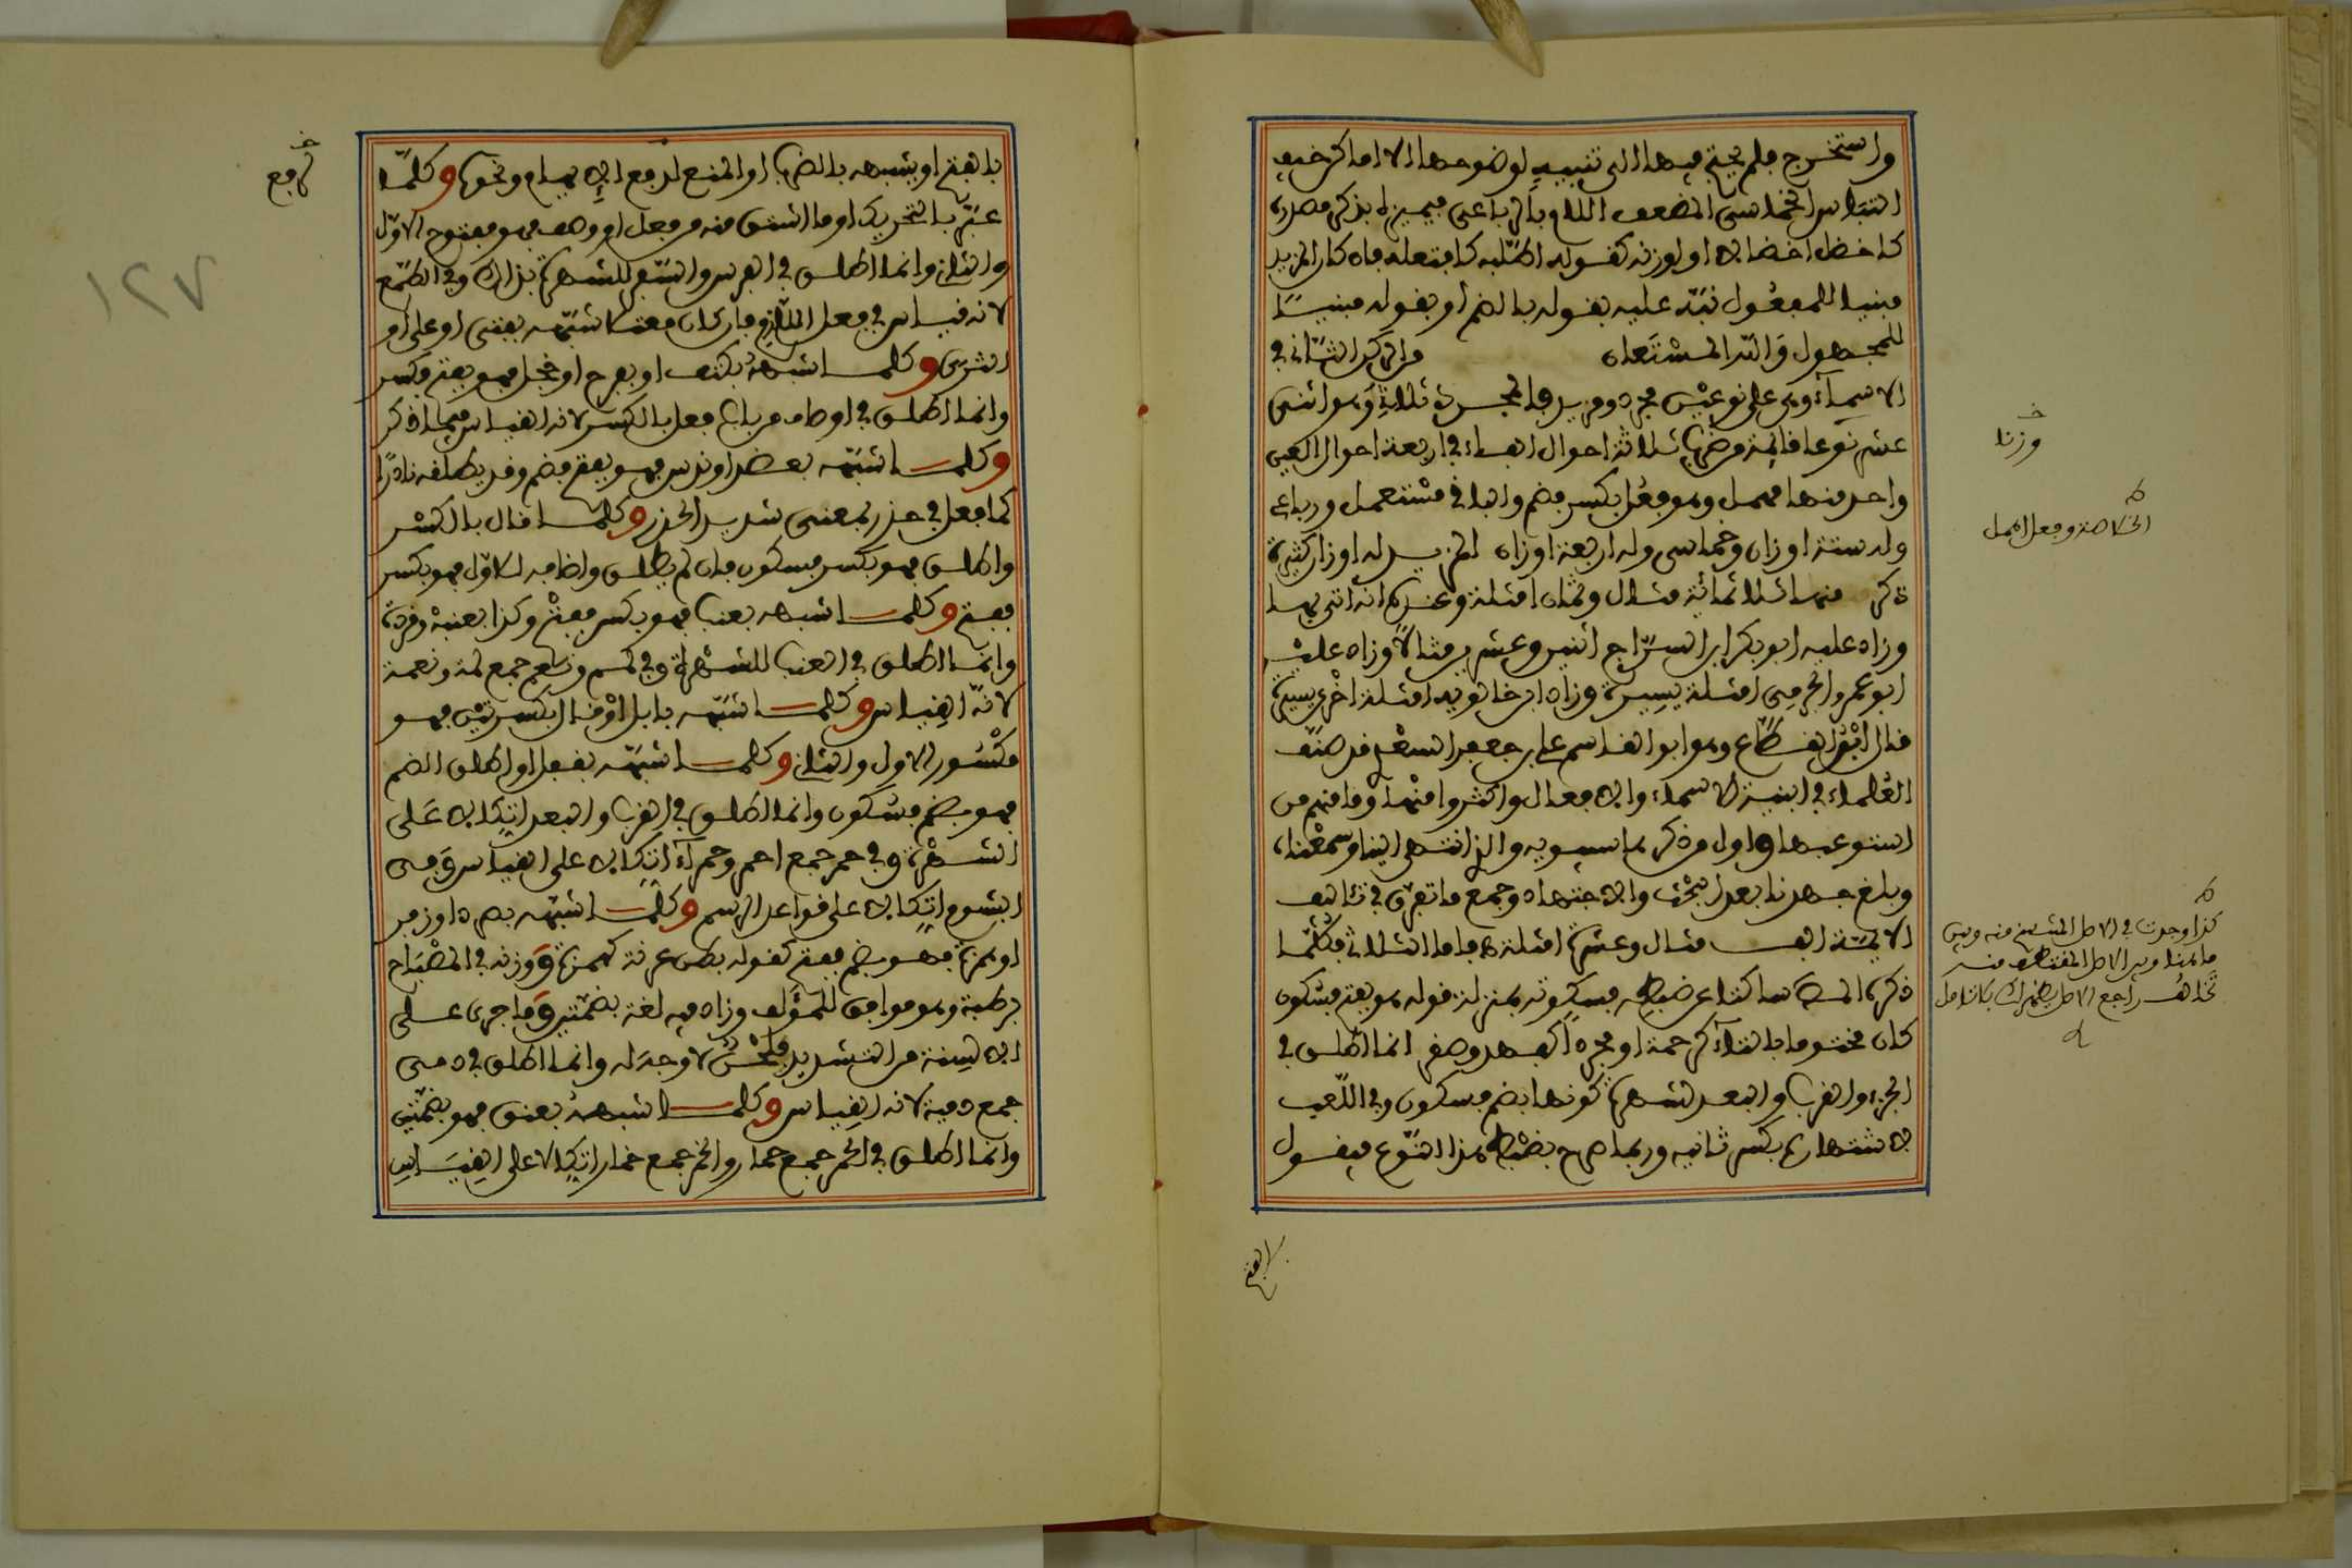 واستخرج فلم يحتج فيها الى تنبيه لوضوحها الا اماكن خيف
التباس الخماسي المضعف اللام بالرباعي فيميزه بذكر مصدره
كاخضل اخضلالا او بوزنه كقوله اطلبه كافتعله فان كان المزيد
مبنيا للمفعول نبّه عليه بقوله بالضم أو بقوله مبنيا
للمجهول والله المستعان والركن الثاني في
الاسماء وهي على نوعين مجرد ومزيد فالمجرد ثلاثي وهو اثنى
عشر نوعا قائمة من ضرب ثلاثة احوال الفاء في اربعة احوال العين
واحد منها مهمل وهو فِعُل بكسر فضم والباقي مستعمل ورباعي
وله ستة اوزان وخماسي وله اربعة اوزان المزيد له اوزان كثيرة
ذكر منها ثلاثمائة مثال وثمان امثلة وعنده انه اتى بها
وزاد عليه ابو بكر ابن السراج اثنين وعشرين مثالا وزاد عليه
ابو عمر الجرمي امثلة يسيرة وزاد ابن خالويه امثلة اخرى يسيرة
قال ابن القطاع وهو ابو القاسم علي بن جعفر السعدي قد صنف
العلماء في ابنية الاسماء والافعال واكثروا منها وما منهم من
استوعبها واول من ذكرها سيبويه والذي انتهى الينا وسعنا
وبلغ جهدنا بعد البحث والاجتهاد وجمع ما تفرق في تئاليف
الايمة الف مثال وعشرة امثلة ه فاما الثلاثي فكلما
ذكره المص ساكتا عن ضبطه فسكوته بمنزلة قوله هو بفتح فسكون
كان مختوما بالتاء كرحمة او مجردا كفهد وصقر انما اطلق في
الجزء والقرب والبعد لشهرة كونها بضم فسكون وفي اللعب
لاشتهاره بكسر ثانيه وربما صرح بضبط هذا النوع فيقول
وزنا
الخلاصة وفعل اهمل
كذا وجدت في الاصل المنتسخ منه وبين
ما هنا وبين الاصل المقتطف منه
تخالف راجع الاصل يظهر لك بالتامل
بالفتح
بالفتح او يشبهه بالضرب او المنع لدفع الايهام ونحوه وكلما
عبّر بالتحريك او ما اشتق منه من فعل او وصف فهو مفتوح الاول
والثاني وانما اطلق في الفرس والسفر للشهرة بذلك وفي الطمع
لانه قياس في فعل اللازم فان كان معتلا شبّهه بفتى او على او
الثرى وكلما شبهه بكتف او بفرح او خجل فهو بفتح فكسر
وانما اطلق في اوصاف من باب فعل بالكسر لانه القياس فيما ذكر
وكلما شبّهه بعضد او ندس فهو بفتح فضم وقد يطلقه نادرا
كما فعل في حذر بمعنى شديد الحذر وكلما قال بالكسر
واطلق فهو بكسر فسكون فان لم يطلق واضافه للاول فهو بكسر
ففتح وكلما شبهه بعنب فهو بكسر ففتح وكذا بعنبة وقردة
وانما اطلق في العنب للشهرة وفي لمم ونعم جمع لمة ونعمة
لانه القياس وكلما شبّهه بابل او قال بكسرتين فهو
مكسور الاول والثاني وكلما شبّهه بقفل او اطلق الضم
فهو بضم فسكون وانما اطلق في القرب والبعد اتكالا على
الشهرة وفي حمر جمع احمر وحمراء اتكالا على القياس وفي
الشوم اتكالا على قواعد الرسم وكلما شبّهه بصرد او زفر
او همزة فهو بضم ففتح كقوله بطن عرنة كهمزة ووزنه في المصباح
برطبة وهو موافق للمؤلف وزاد فيه لغة بضمتين وما جرى على
الالسنة من التشديد فلحن لا وجه له وانما اطلق في دمى
جمع دمية لانه القياس وكلما شبهه بعنق فهو بضمتين
وانما اطلق في الحمر جمع حمار والخمر جمع خمار اتكالا على القياس
لرفع
١٢٧